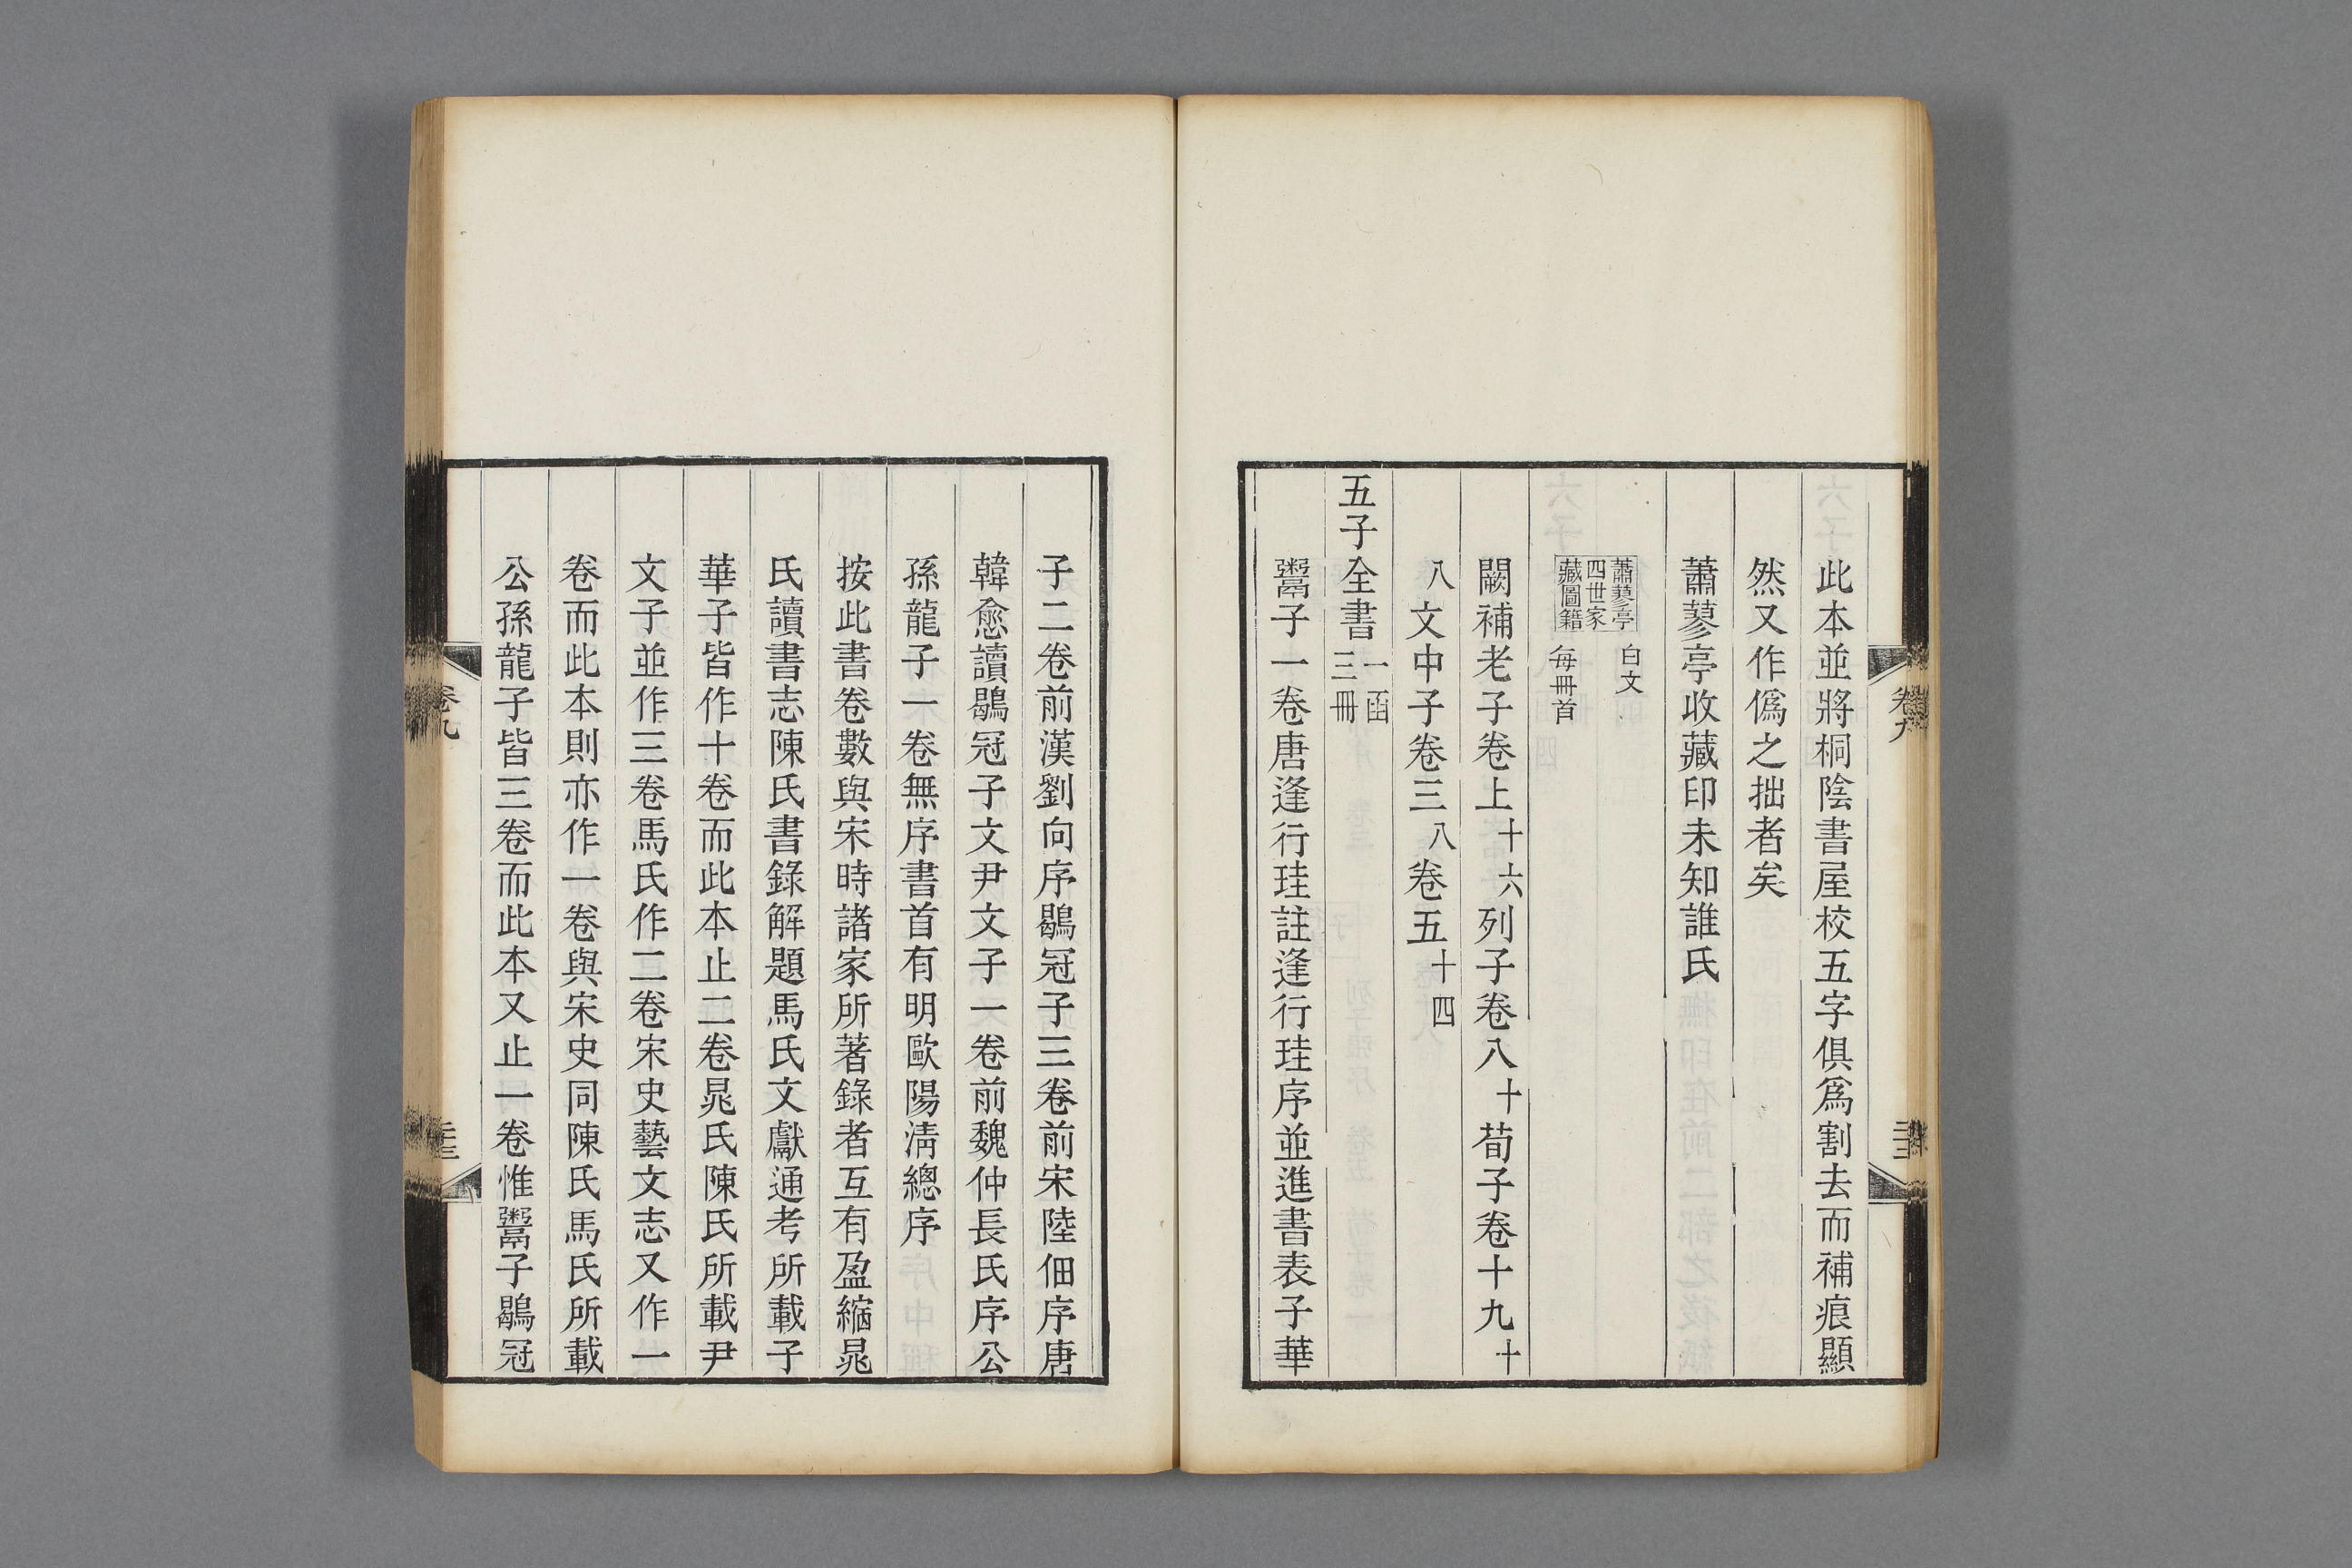 此本並將桐陰書屋校五字俱爲割去而補痕顯
然又作僞之拙者矣
蕭蓼亭收藏印未知誰氏
蕭蓼亭
四世家
藏圖籍
白文
每冊首
闕補老子卷上十六列子卷八十荀子卷十九十
八文中子卷三八卷五十四
五子全書一函三冊
鬻子一卷唐逢行珪註逢行珪序並進書表子華
子二卷前漢劉向序鶡冠子三卷前宋陸佃序唐
韓愈讀鶡冠子文尹文子一卷前魏仲長氏序公
孫龍子一卷無序書首有明歐陽淸總序
按此書卷數與宋時諸家所著錄者互有盈縮晁
氏讀書志陳氏書錄解題馬氏文獻通考所載子
華子皆作十卷而此本止二卷晁氏陳氏所載尹
文子並作三卷馬氏作二卷宋史藝文志又作一
卷而此本則亦作一卷與宋史同陳氏馬氏所載
公孫龍子皆三卷而此本又止一卷惟鬻子鶡冠
卷九